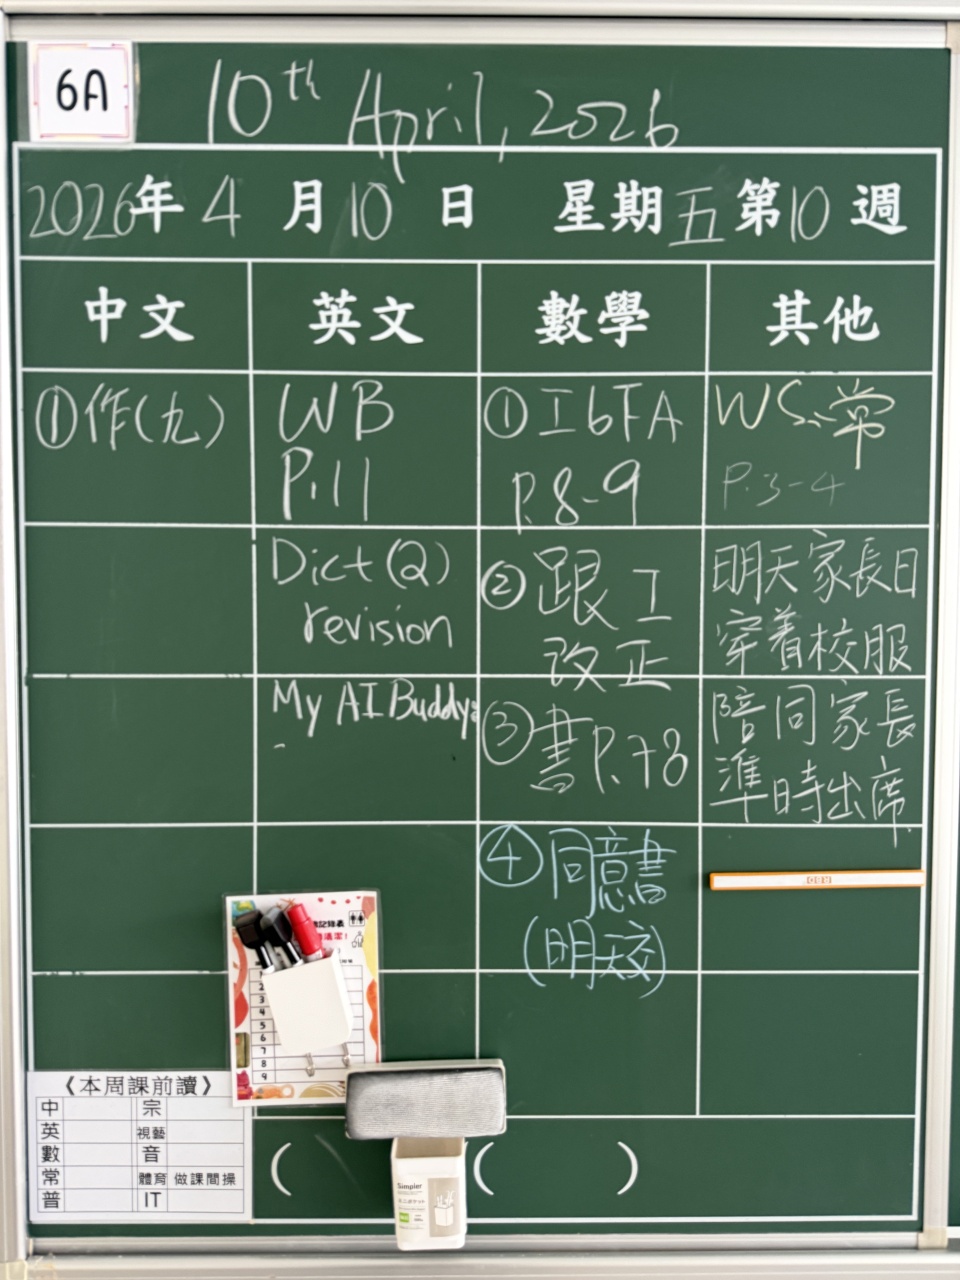 6A
10th April, 2026
2026年4月10日 星期五第10週
中文 英文 數學 其他
①作(九)
WB
P.11
①工6下A
P.8-9
WS、常
P.3-4
Dict(Q)
revision
②跟工
改正
明天家長日
穿着校服
My AI Buddy
③書P.78
陪同家長
準時出席
④同意書
(明天交)
2
3
4
5
6
7
8
9
《本周課前讀》
中 宗
英 視藝
數 音
常 體育 做課間操
普 IT
( ( )
Simpler